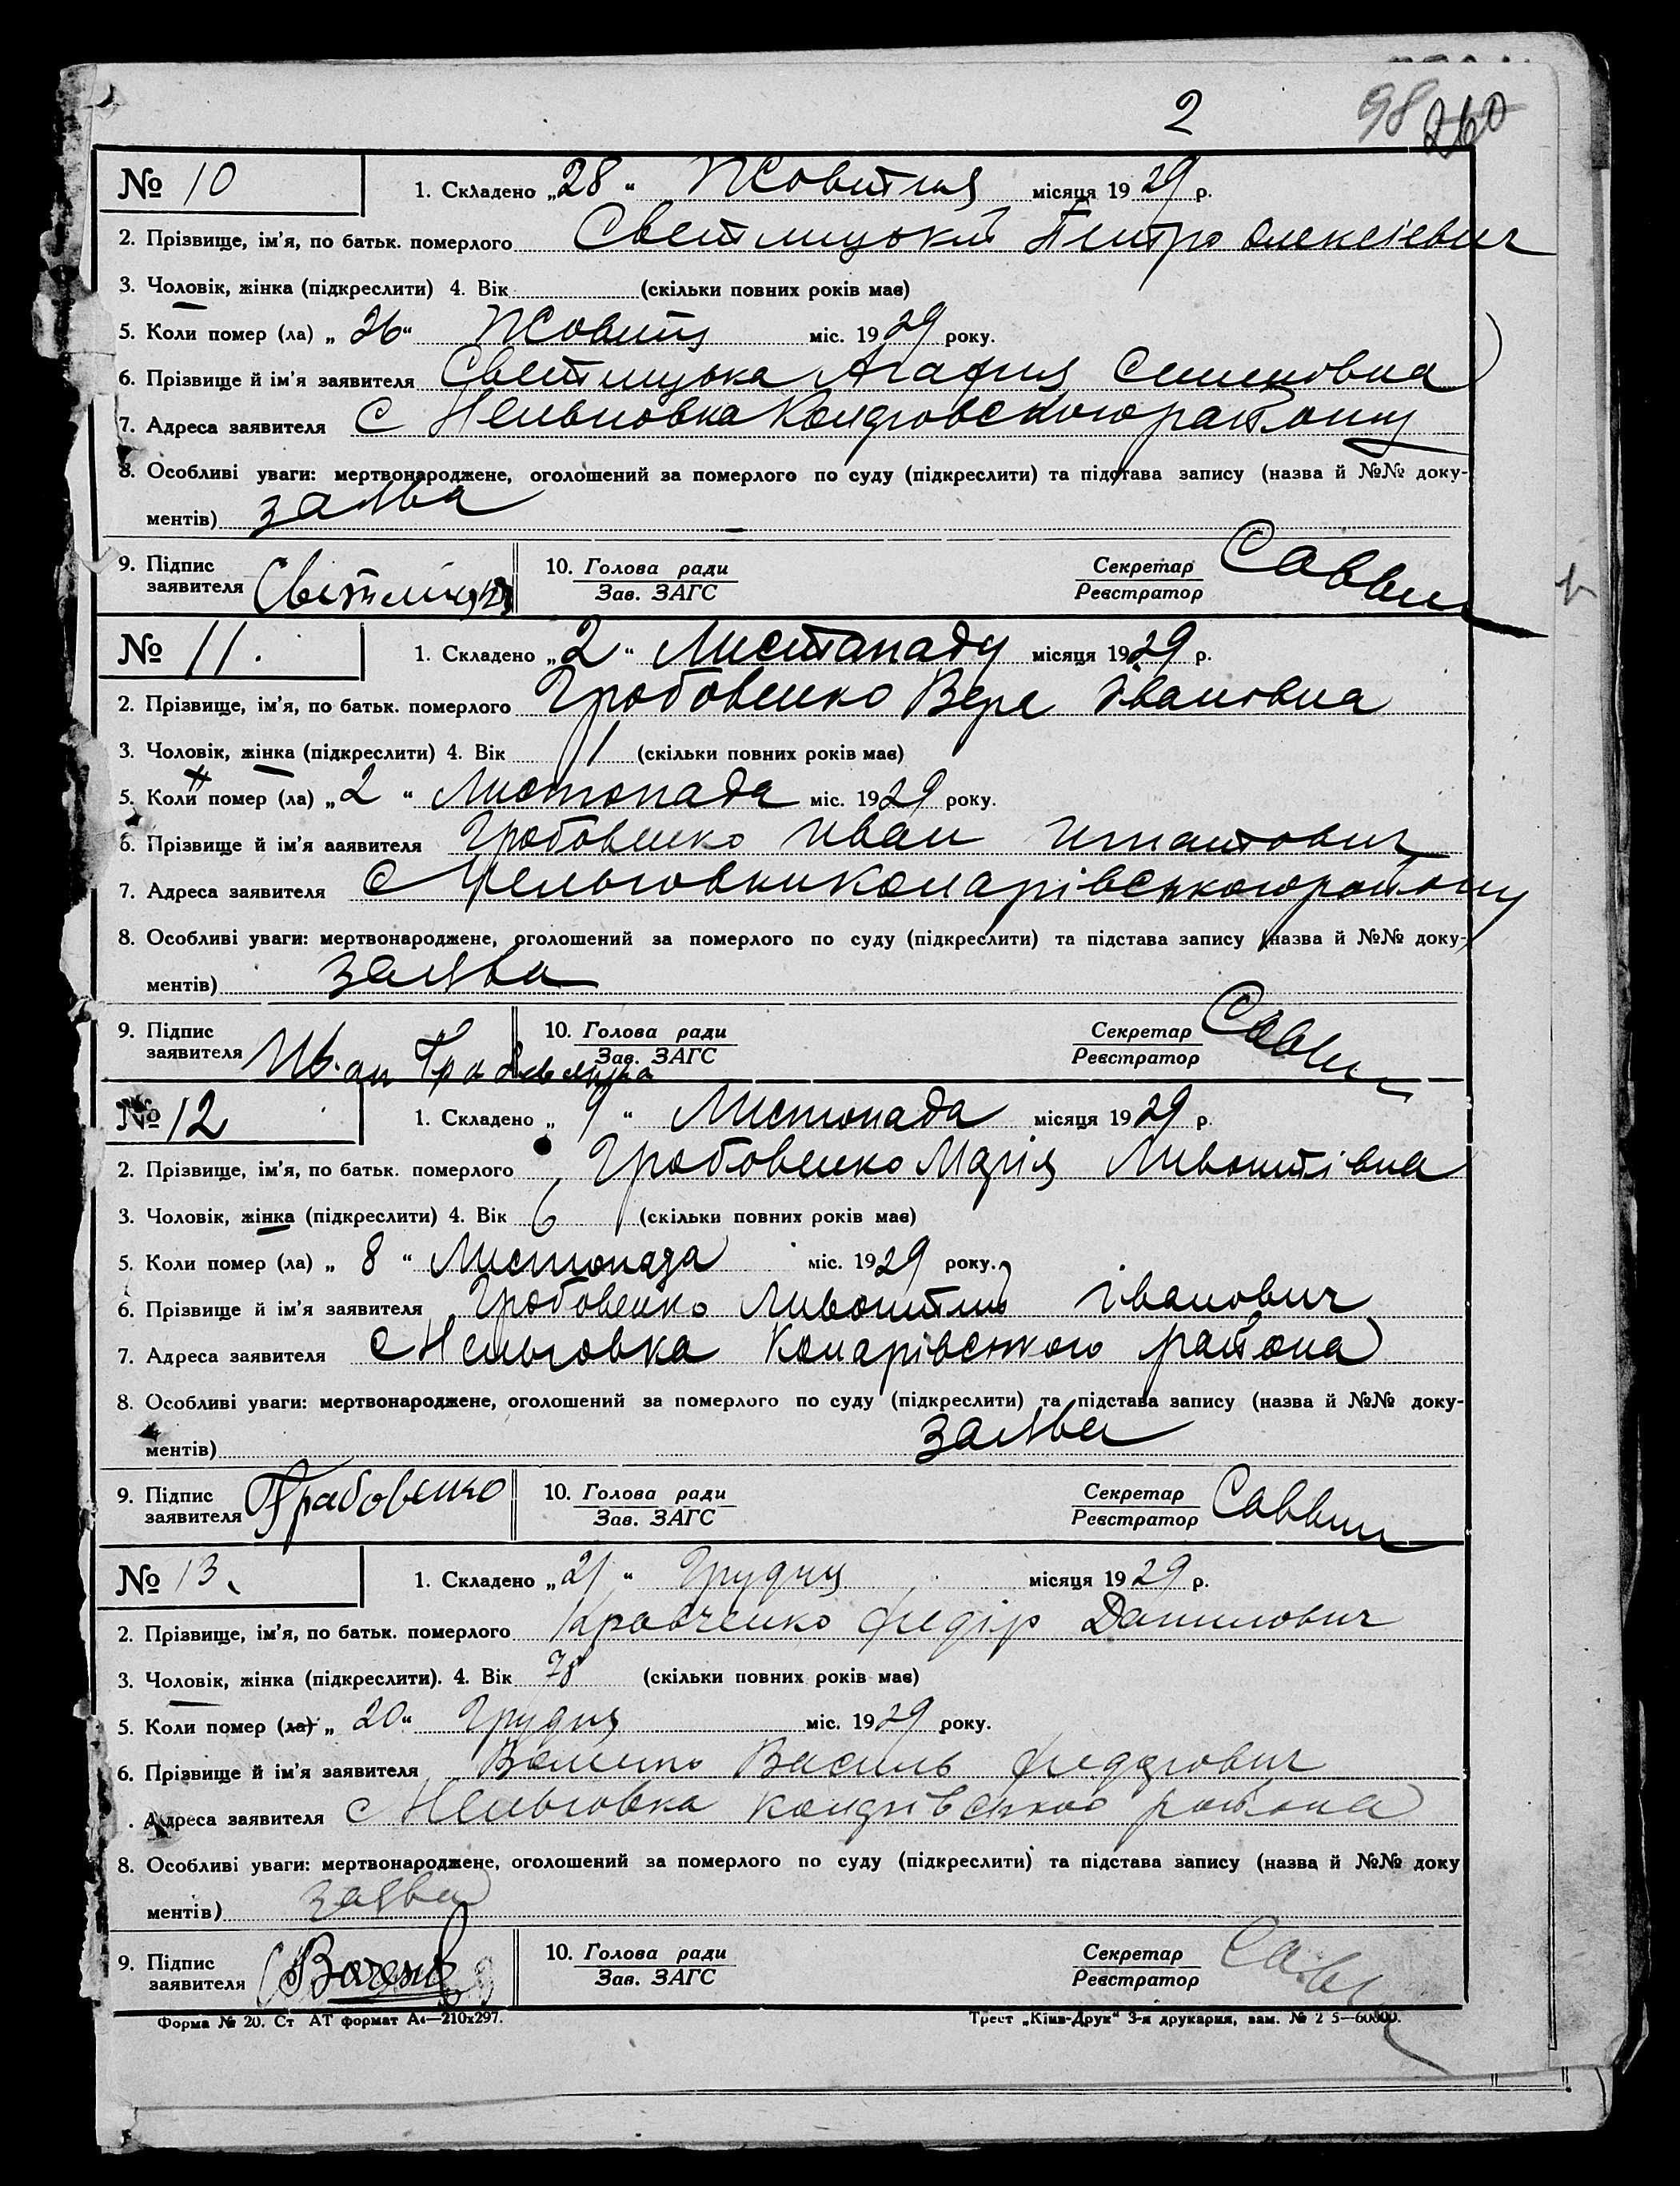 2 98 260
№ 10 1. Складено „28“ Жовтня місяця 1929 р.
2. Прізвище, ім'я, по батьк. померлого Светлицький Петро Олексієвич
3. Чоловік, жінка (підкреслити) 4. Вік (скільки повних років має)
5. Коли помер (ла) „26“ Жовтня міс. 1929 року.
6. Прізвище й ім'я заявителя Светлицька Агафия Семеновна
7. Адреса заявителя с Нельговка району
8. Особливі уваги: мертвонароджене, оголошений за померлого по суду (підкреслити) та підстава запису (назва й №№ доку-
ментів) заява
9. Підпис 10. Голова ради Секретар Саввин
заявителя Зав. ЗАГС Реєстратор
№ 11. 1. Складено „2“ Листападу місяця 1929 р.
2. Прізвище, ім'я, по батьк. померлого Гробовенко Вера Івановна
3. Чоловік, жінка (підкреслити) 4. Вік 1 (скільки повних років має)
5. Коли помер (ла) „2“ Листопада міс. 1929 року.
6. Прізвище й ім'я заявителя Гробовенко Иван
7. Адреса заявителя с Нельговки Комарівського району
8. Особливі уваги: мертвонароджене, оголошений за померлого по суду (підкреслити) та підстава запису (назва й №№ доку-
ментів) заява
9. Підпис 10. Голова ради Секретар Саввин
заявителя Зав. ЗАГС Реєстратор
№ 12 1. Складено „9“ Листопада місяця 1929 р.
2. Прізвище, ім'я, по батьк. померлого Гробовенко Марія
3. Чоловік, жінка (підкреслити) 4. Вік 6 (скільки повних років має)
5. Коли помер (ла) „8“ Листопада міс. 1929 року.
6. Прізвище й ім'я заявителя Гробовенко Іванович
7. Адреса заявителя с Нельговка Комарівського района
8. Особливі уваги: мертвонароджене, оголошений за померлого по суду (підкреслити) та підстава запису (назва й №№ доку-
ментів) заява
9. Підпис Грабовенко 10. Голова ради Секретар Саввин
заявителя Зав. ЗАГС Реєстратор
№ 13. 1. Складено „21“ Грудня місяця 1929 р.
2. Прізвище, ім'я, по батьк. померлого Кравченко Федір Данилович
3. Чоловік, жінка (підкреслити). 4. Вік 78 (скільки повних років має)
5. Коли помер (ла) „20“ Грудня міс. 1929 року.
6. Прізвище й ім'я заявителя Василь Федорович
. Адреса заявителя с Нельговка района
8. Особливі уваги: мертвонароджене, оголошений за померлого по суду (підкреслити) та підстава запису (назва й №№ доку
ментів) заява
9. Підпис 10. Голова ради Секретар
заявителя Зав. ЗАГС Реєстратор
Форма № 20. Ст АТ формат А4—210х297. Трест „Київ-Друк“ 3-я друкарня, зам. №